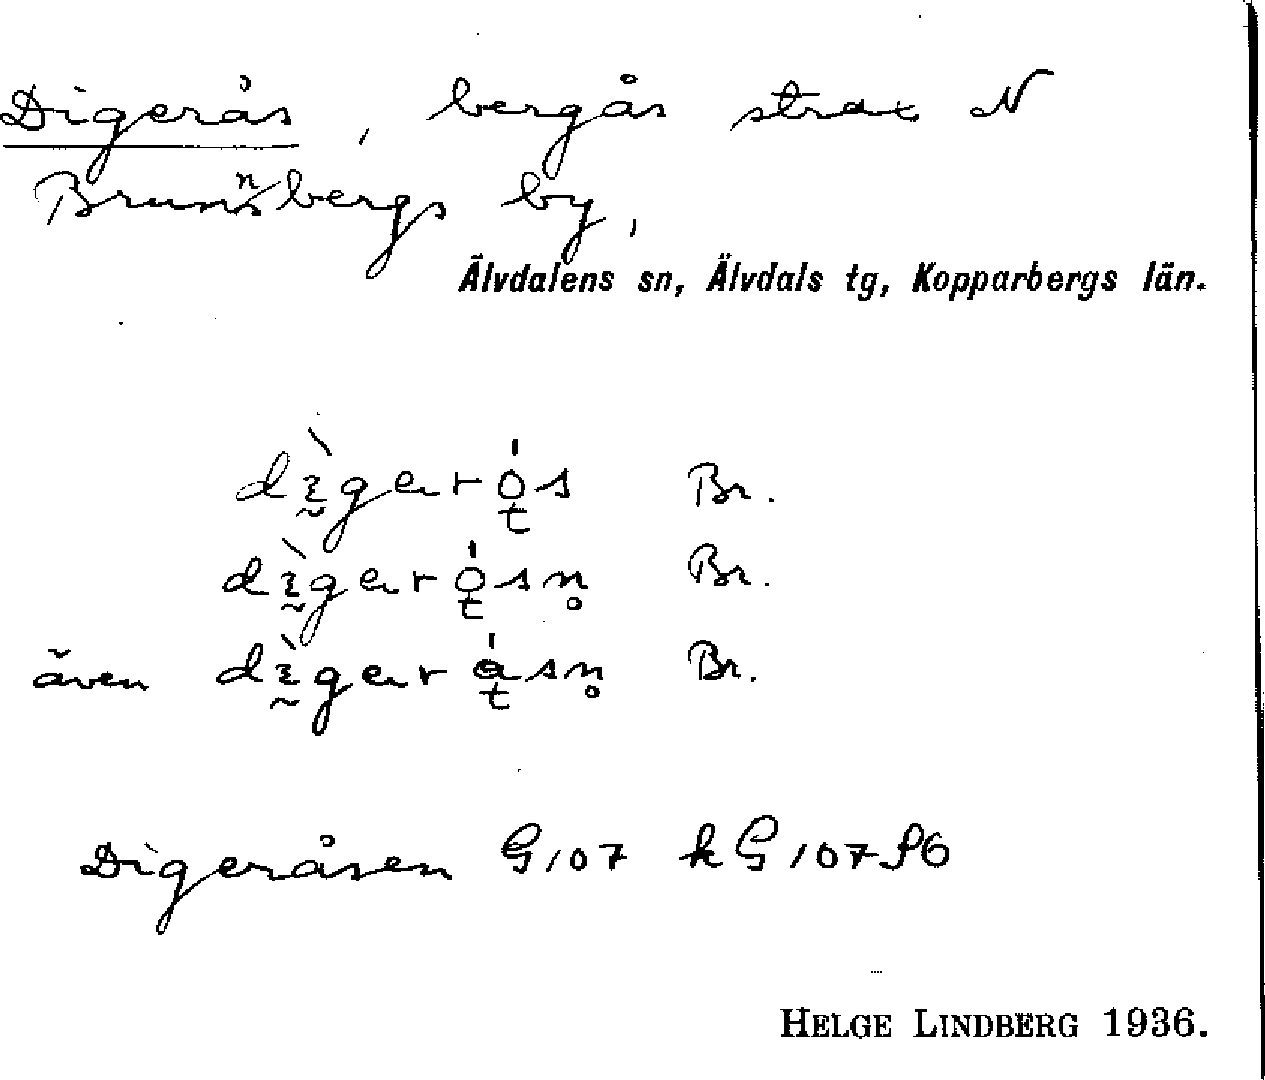 Digerås, bergås strax N
Brunnbergs by,
Älvdalens sn, Älvdals tg, Kopparbergs län.
Br.
Br.
även Br.
Digeråsen G107 kG107S6
HELGE LINDBERG 1936.